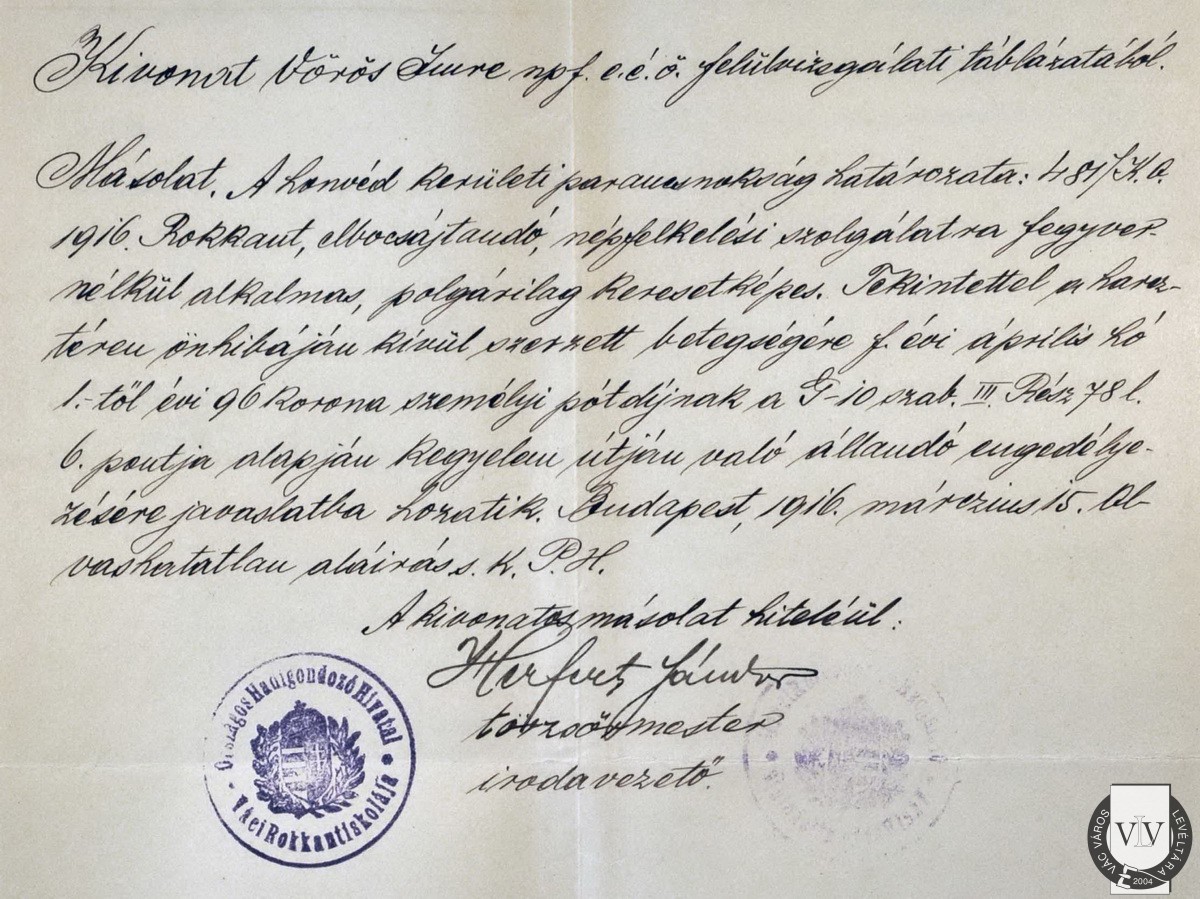 Kivonat Vörös Imre npf. e. é. ő. felülvizsgálati táblázatából.
Másolat. A honvéd kerületi parancsnokság határozata: 481/K.O.
1916. Rokkant, elbocsájtandó, népfelkelési szolgálatra fegyver-
nélkül alkalmas, polgárilag keresetképes. Tekintettel a harcz-
téren önhibáján kívül szerzett betegségére f. évi április hó
1.-től évi 96 korona személyi pótdíjnak a G-10 szab. III. Rész 78 l.
6. pontja alapján kegyelem útján való állandó engedélye-
zésére javaslatba hozatik. Budapest, 1916. márczius 15. Ol-
vashatatlan aláirás s. k. P. H.
A kivonatos másolat hiteléül:
Herfert Sándor
törzsőrmester
irodavezető.
Országos Hadigondozó Hivatal
Váci Rokkantiskolája
VÁC VÁROS LEVÉLTÁRA
VLV
2004